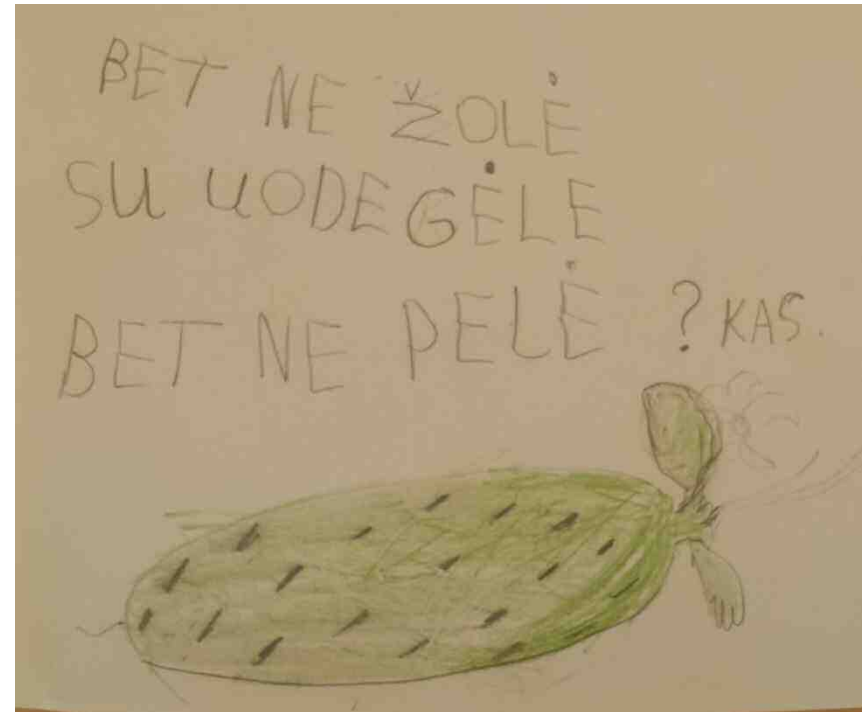 BET NE ŽOLĖ
SU UODEGĖLE
BET NE PELĖ ? KAS.